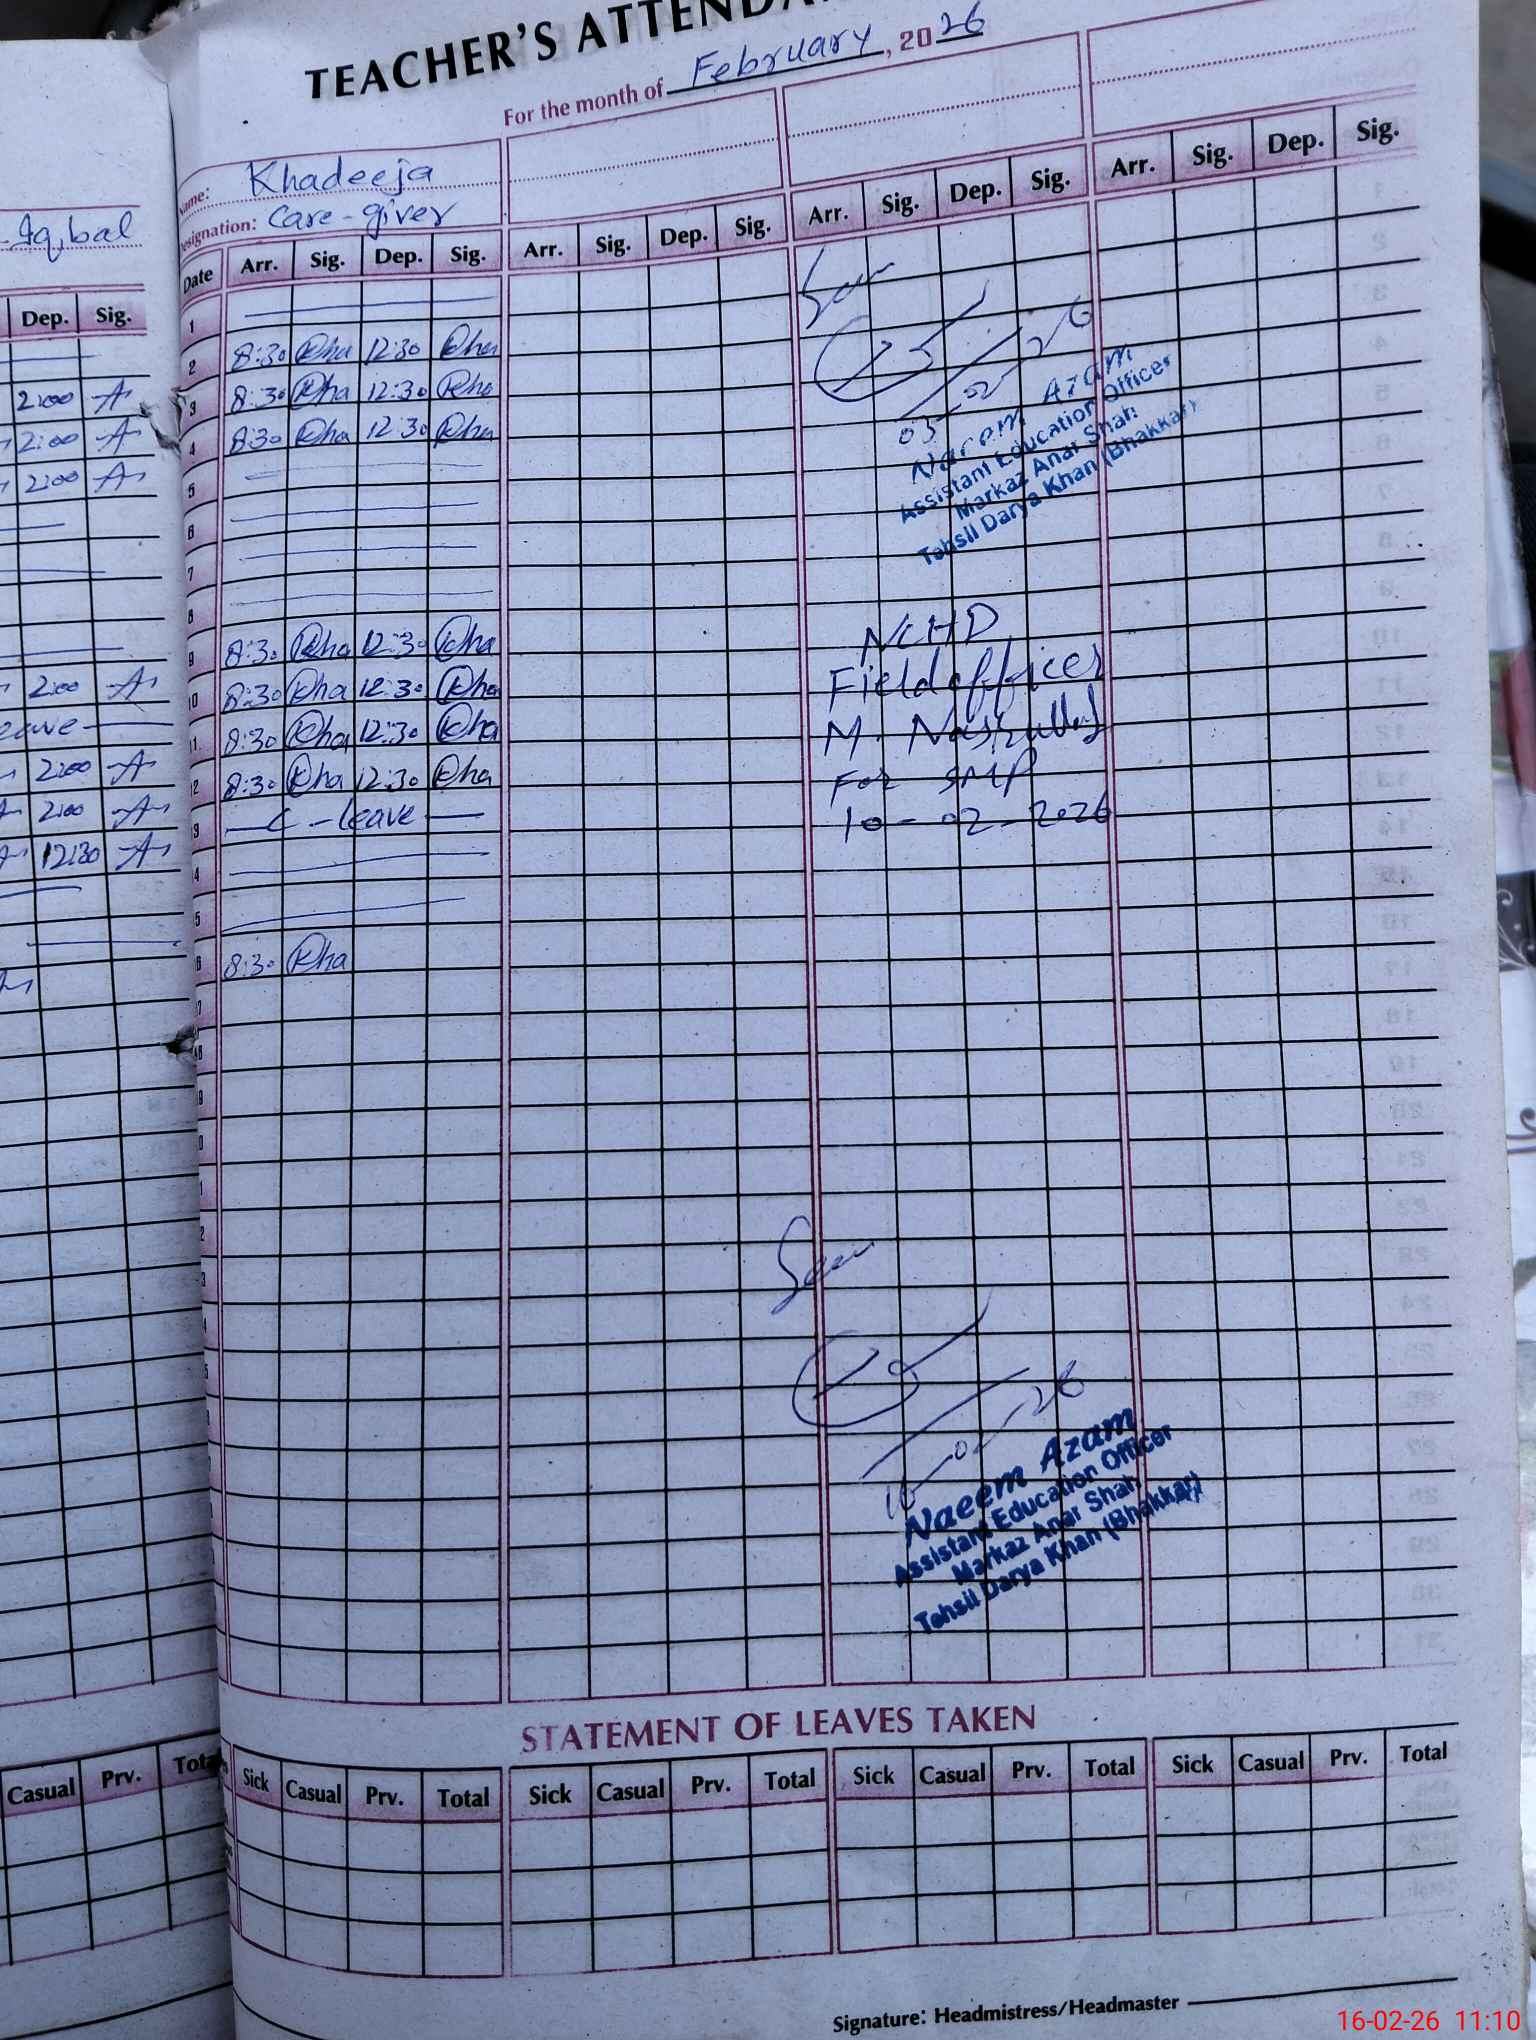 TEACHER'S ATTENDA
For the month of February, 2026
Name: Khadeeja
Designation: Care-giver
Iqbal
Dep. Sig.
2:00 A
2:00 A
2:00 A
2:00 A
leave
2:00 A
2:00 A
12:30 A
Date Arr. Sig. Dep. Sig. Arr. Sig. Dep. Sig. Arr. Sig. Dep. Sig. Arr. Sig. Dep. Sig.
1
2 8:30 Kha 12:30 Kha
3 8:30 Kha 12:30 Kha
4 8:30 Kha 12:30 Kha
5
6
7
8
9 8:30 Kha 12:30 Kha
10 8:30 Kha 12:30 Kha
11 8:30 Kha 12:30 Kha
12 8:30 Kha 12:30 Kha
3 C-leave
4
5
6 8:30 Kha
Seen
05-02-26
Naeem Azam
Assistant Education Officer
Markaz Anar Shah
Tehsil Darya Khan (Bhakkar)
NCHD
Field officer
M. Nasrullah
For SMP
10-02-2026
Seen
16-02-26
Naeem Azam
Assistant Education Officer
Markaz Anar Shah
Tehsil Darya Khan (Bhakkar)
STATEMENT OF LEAVES TAKEN
Casual Prv. Total
Sick Casual Prv. Total Sick Casual Prv. Total Sick Casual Prv. Total Sick Casual Prv. Total
Signature: Headmistress/Headmaster
16-02-26 11:10